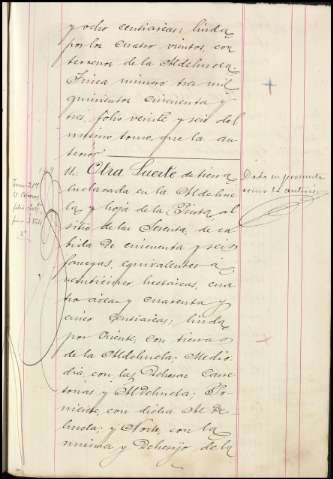 y ocho centiareas; linda
por los cuatro vientos con
terrenos de la Aldehuela.
Finca número tres mil
quinientos cincuenta y
tres, folio veinte y seis del
mismo tomo, que la an
terior
11. Otra Suerte de tierra
enclavada en la Aldehue
la y hoja de la Pinta al
sitio de la Serena, de ca
bida de cincuenta y seis
fanegas, equivalentes á
veintinueve hectáreas, cua
tro áreas y cuarenta y
cinco centiareas; linda
por Oriente, con tierras
de la Aldehuela; Medio
dia, con las Dehesas
y Aldehuela; Po
niente, con dicha Al de
huela; y Norte, con la
misma y Dehesijo de la
como la anterior